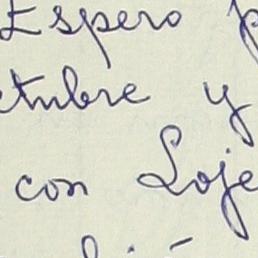 Espero p
ctubre y
con Loje